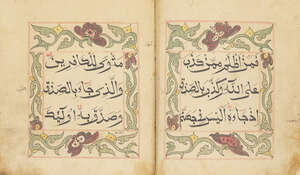 فمن اظلم ممن كذب
على الله وكذب بالصدق
اذ جاءه اليس فى جهنم
مثوى للكافرين
والذى جاء بالصدق
وصدق به اولئك